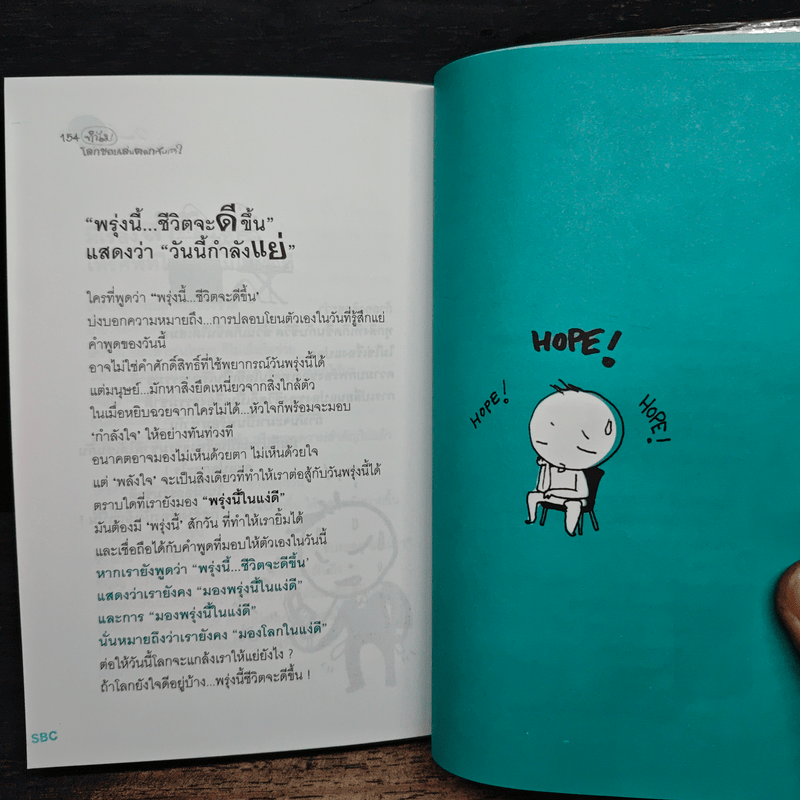 154 ทำไม
โลกชอบเล่นตลกกับเรา?
“พรุ่งนี้...ชีวิตจะดีขึ้น”
แสดงว่า “วันนี้กำลังแย่”
ใครที่พูดว่า “พรุ่งนี้...ชีวิตจะดีขึ้น’
บ่งบอกความหมายถึง...การปลอบโยนตัวเองในวันที่รู้สึกแย่
คำพูดของวันนี้
อาจไม่ใช่คำศักดิ์สิทธิ์ที่ใช้พยากรณ์วันพรุ่งนี้ได้
แต่มนุษย์...มักหาสิ่งยึดเหนี่ยวจากสิ่งใกล้ตัว
ในเมื่อหยิบฉวยจากใครไม่ได้...หัวใจก็พร้อมจะมอบ
‘กำลังใจ’ ให้อย่างทันท่วงที
อนาคตอาจมองไม่เห็นด้วยตา ไม่เห็นด้วยใจ
แต่ ‘พลังใจ’ จะเป็นสิ่งเดียวที่ทำให้เราต่อสู้กับวันพรุ่งนี้ได้
ตราบใดที่เรายังมอง “พรุ่งนี้ในแง่ดี”
มันต้องมี ‘พรุ่งนี้’ สักวัน ที่ทำให้เรายิ้มได้
และเชื่อถือได้กับคำพูดที่มอบให้ตัวเองในวันนี้
หากเรายังพูดว่า “พรุ่งนี้...ชีวิตจะดีขึ้น’
แสดงว่าเรายังคง “มองพรุ่งนี้ในแง่ดี”
และการ “มองพรุ่งนี้ในแง่ดี”
นั่นหมายถึงว่าเรายังคง “มองโลกในแง่ดี”
ต่อให้วันนี้โลกจะแกล้งเราให้แย่ยังไง ?
ถ้าโลกยังใจดีอยู่บ้าง...พรุ่งนี้ชีวิตจะดีขึ้น !
SBC
HOPE!
HOPE!
HOPE!